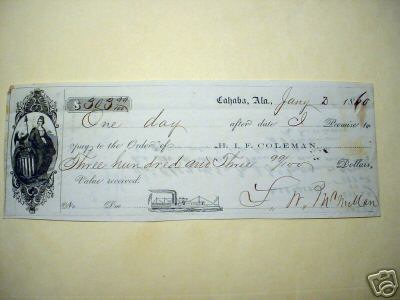 $ 303 99/100 Cahaba, Ala., Jany 2 1860
One day after date I Promise to
pay to the Order of H. I. F. COLEMAN
Three hundred and Three 99/100 Dollars,
Value received.
No. Due